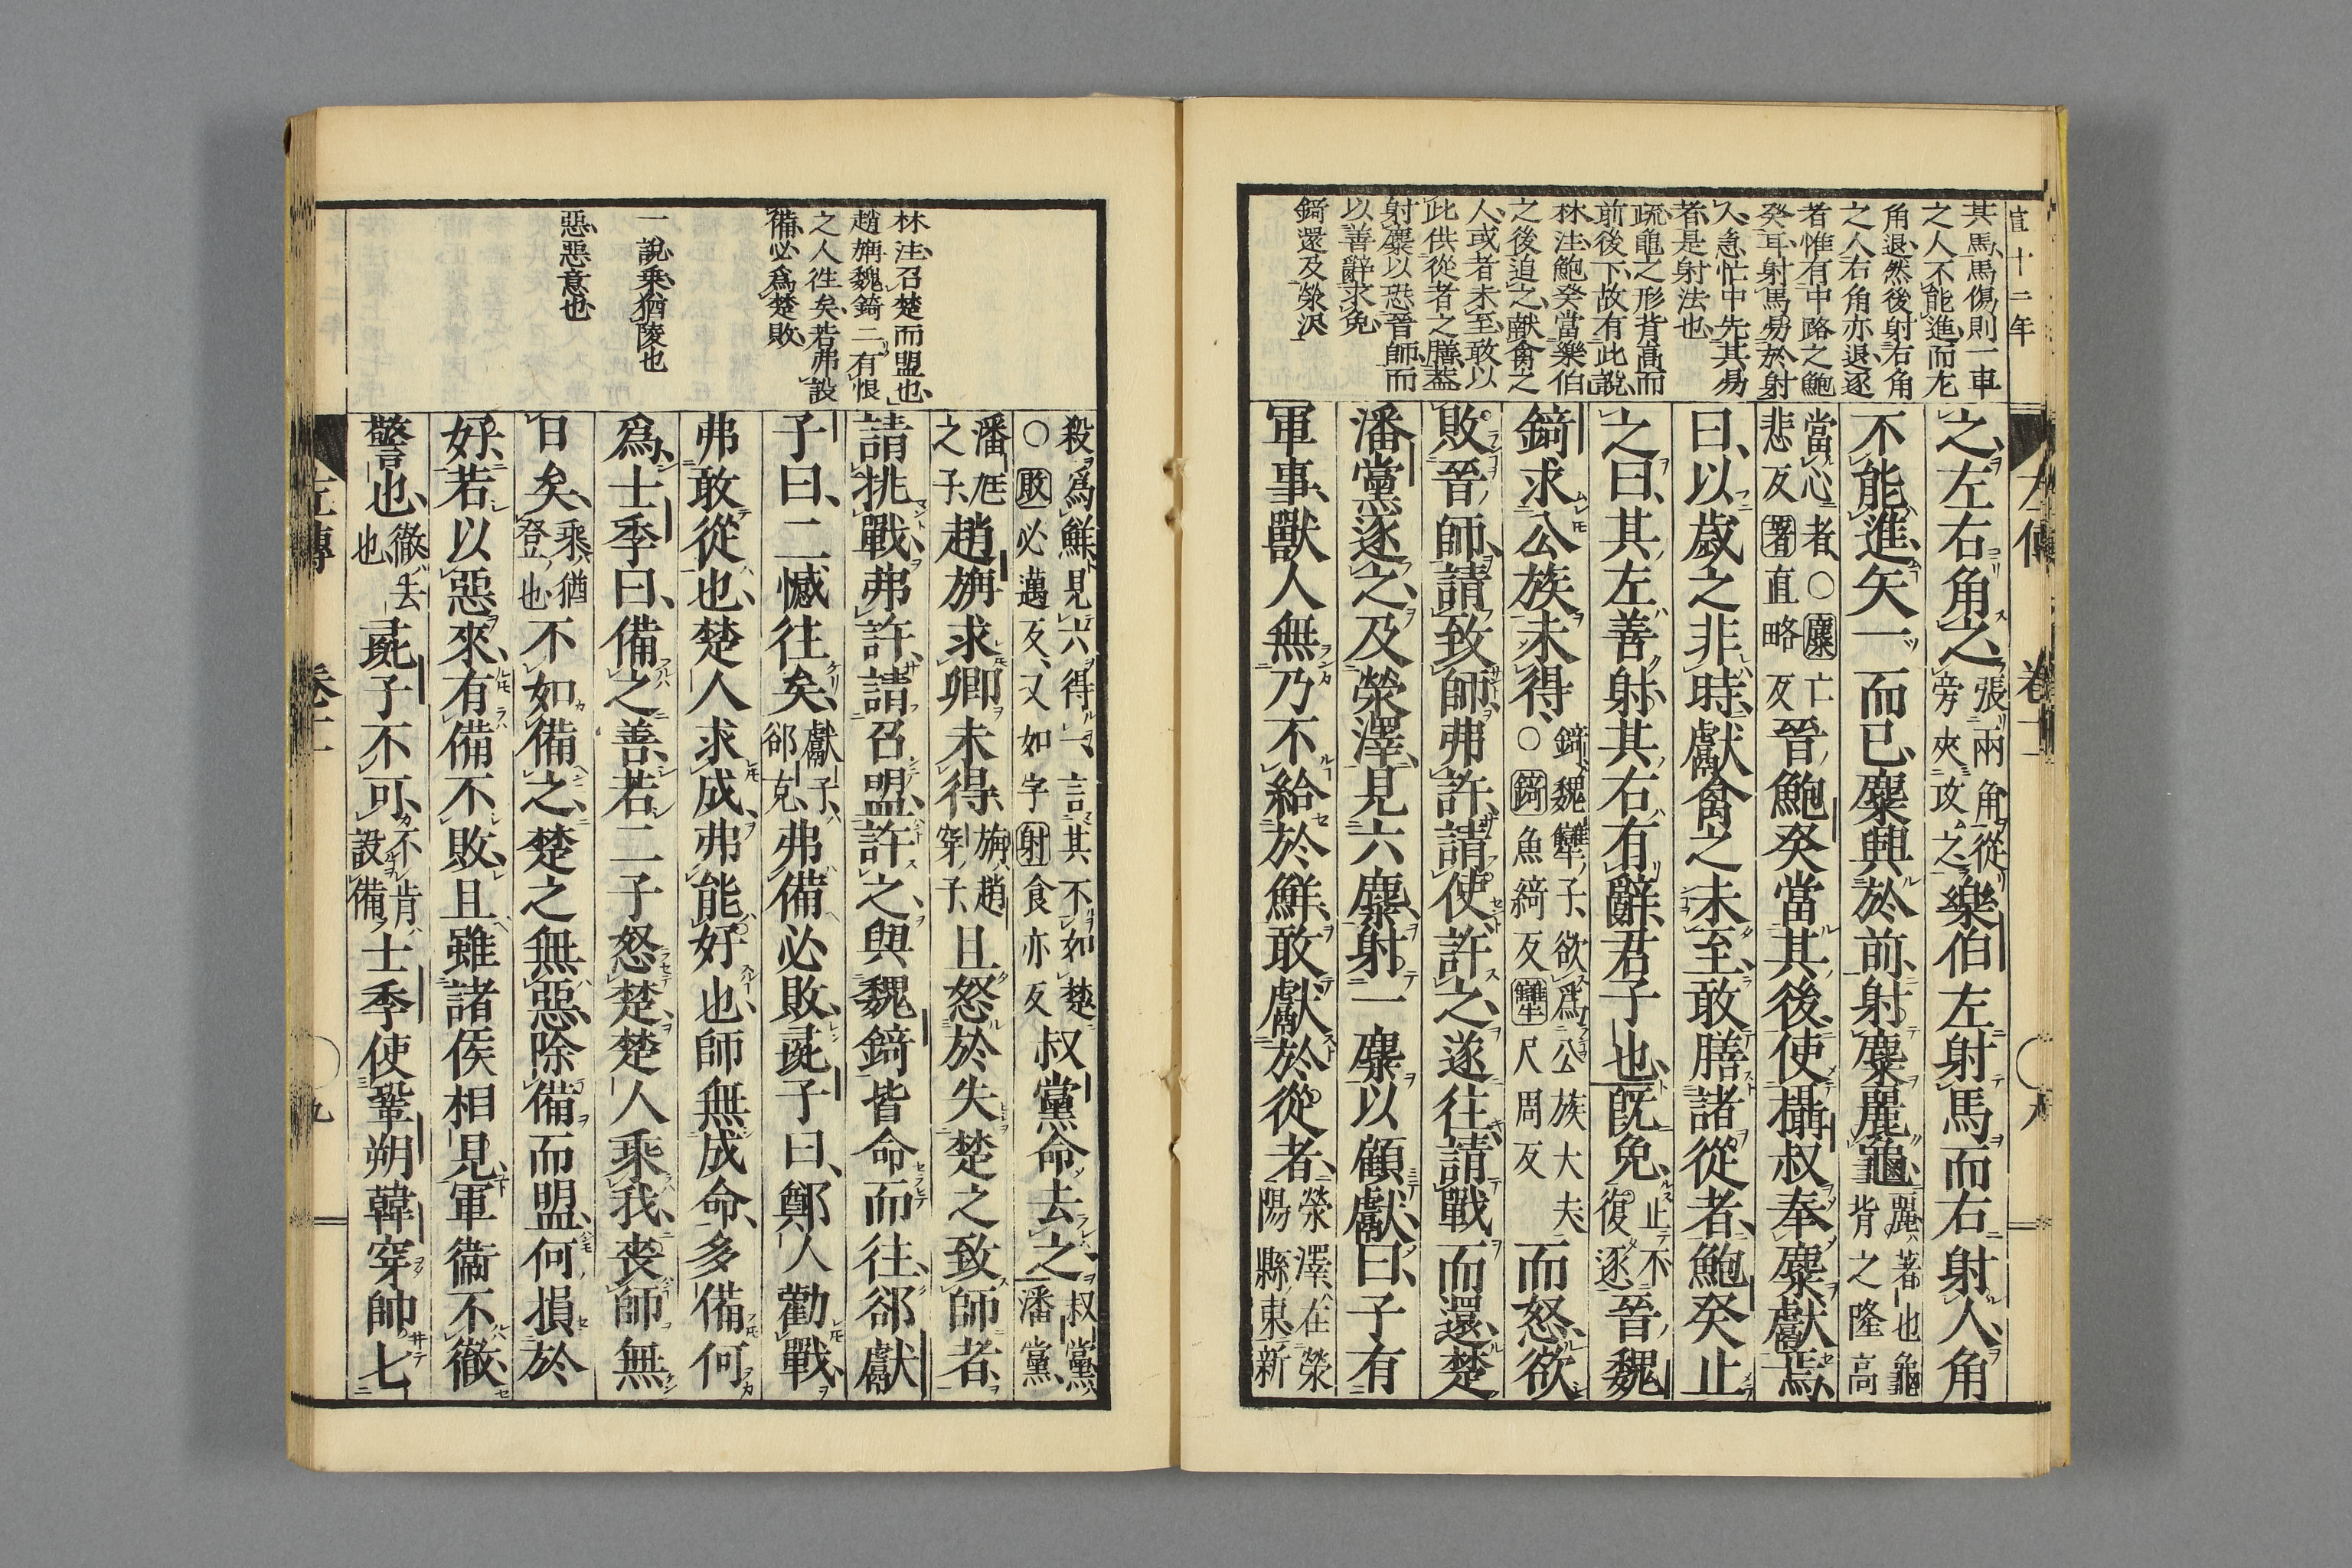 宣十二年
其馬馬傷則一車
之人不能進而左
角退然後射右角
之人右角亦退逐
者惟有中路之鮑
癸耳射馬易於射
人急忙中先其易
者是射法也
疏龜之形背高而
前後下故有此說
林注鮑癸當樂伯
之後迫之獻禽之
人或者未至敢以
此供從者之膳蓋
射麋以恐晉師而
以善辭求免
錡還及滎澤
左傳 卷十一 八
之左右角之張兩角從旁夾攻之樂伯左射馬而右射人角
不能進矢一而已麋興於前射麋麗龜麗著也龜背之隆高
當心者○麋亡悲反著直略反晉鮑癸當其後使攝叔奉麋獻焉
曰以歲之非時獻禽之未至敢膳諸從者鮑癸止
之曰其左善射其右有辭君子也既免止不復逐晉魏
錡求公族未得錡魏犨子欲爲公族大夫○錡魚綺反犨尺周反而怒欲
敗晉師請致師弗許請使許之遂往請戰而還楚
潘黨逐之及滎澤見六麋射一麋以顧獻曰子有
軍事獸人無乃不給於鮮敢獻於從者滎澤在滎陽縣東新
殺爲鮮見六得一言其不如楚○敗必邁反又如字射食亦反叔黨命去之叔黨潘黨
潘尫之子趙旃求卿未得旃趙穿子且怒於失楚之致師者
請挑戰弗許請召盟許之與魏錡皆命而往郤獻
子曰二憾往矣獻子郤克弗備必敗彘子曰鄭人勸戰
弗敢從也楚人求成弗能好也師無成命多備何
爲士季曰備之善若二子怒楚楚人乘我喪師無
日矣乘猶登也不如備之楚之無惡除備而盟何損於
好若以惡來有備不敗且雖諸侯相見軍衞不徹
警也徹去也彘子不可不肯設備士季使鞏朔韓穿帥七
林注召楚而盟也
趙旃魏錡二有恨
之人往矣若弗設
備必爲楚敗
一說乘猶陵也
惡惡意也
左傳 卷十一 九